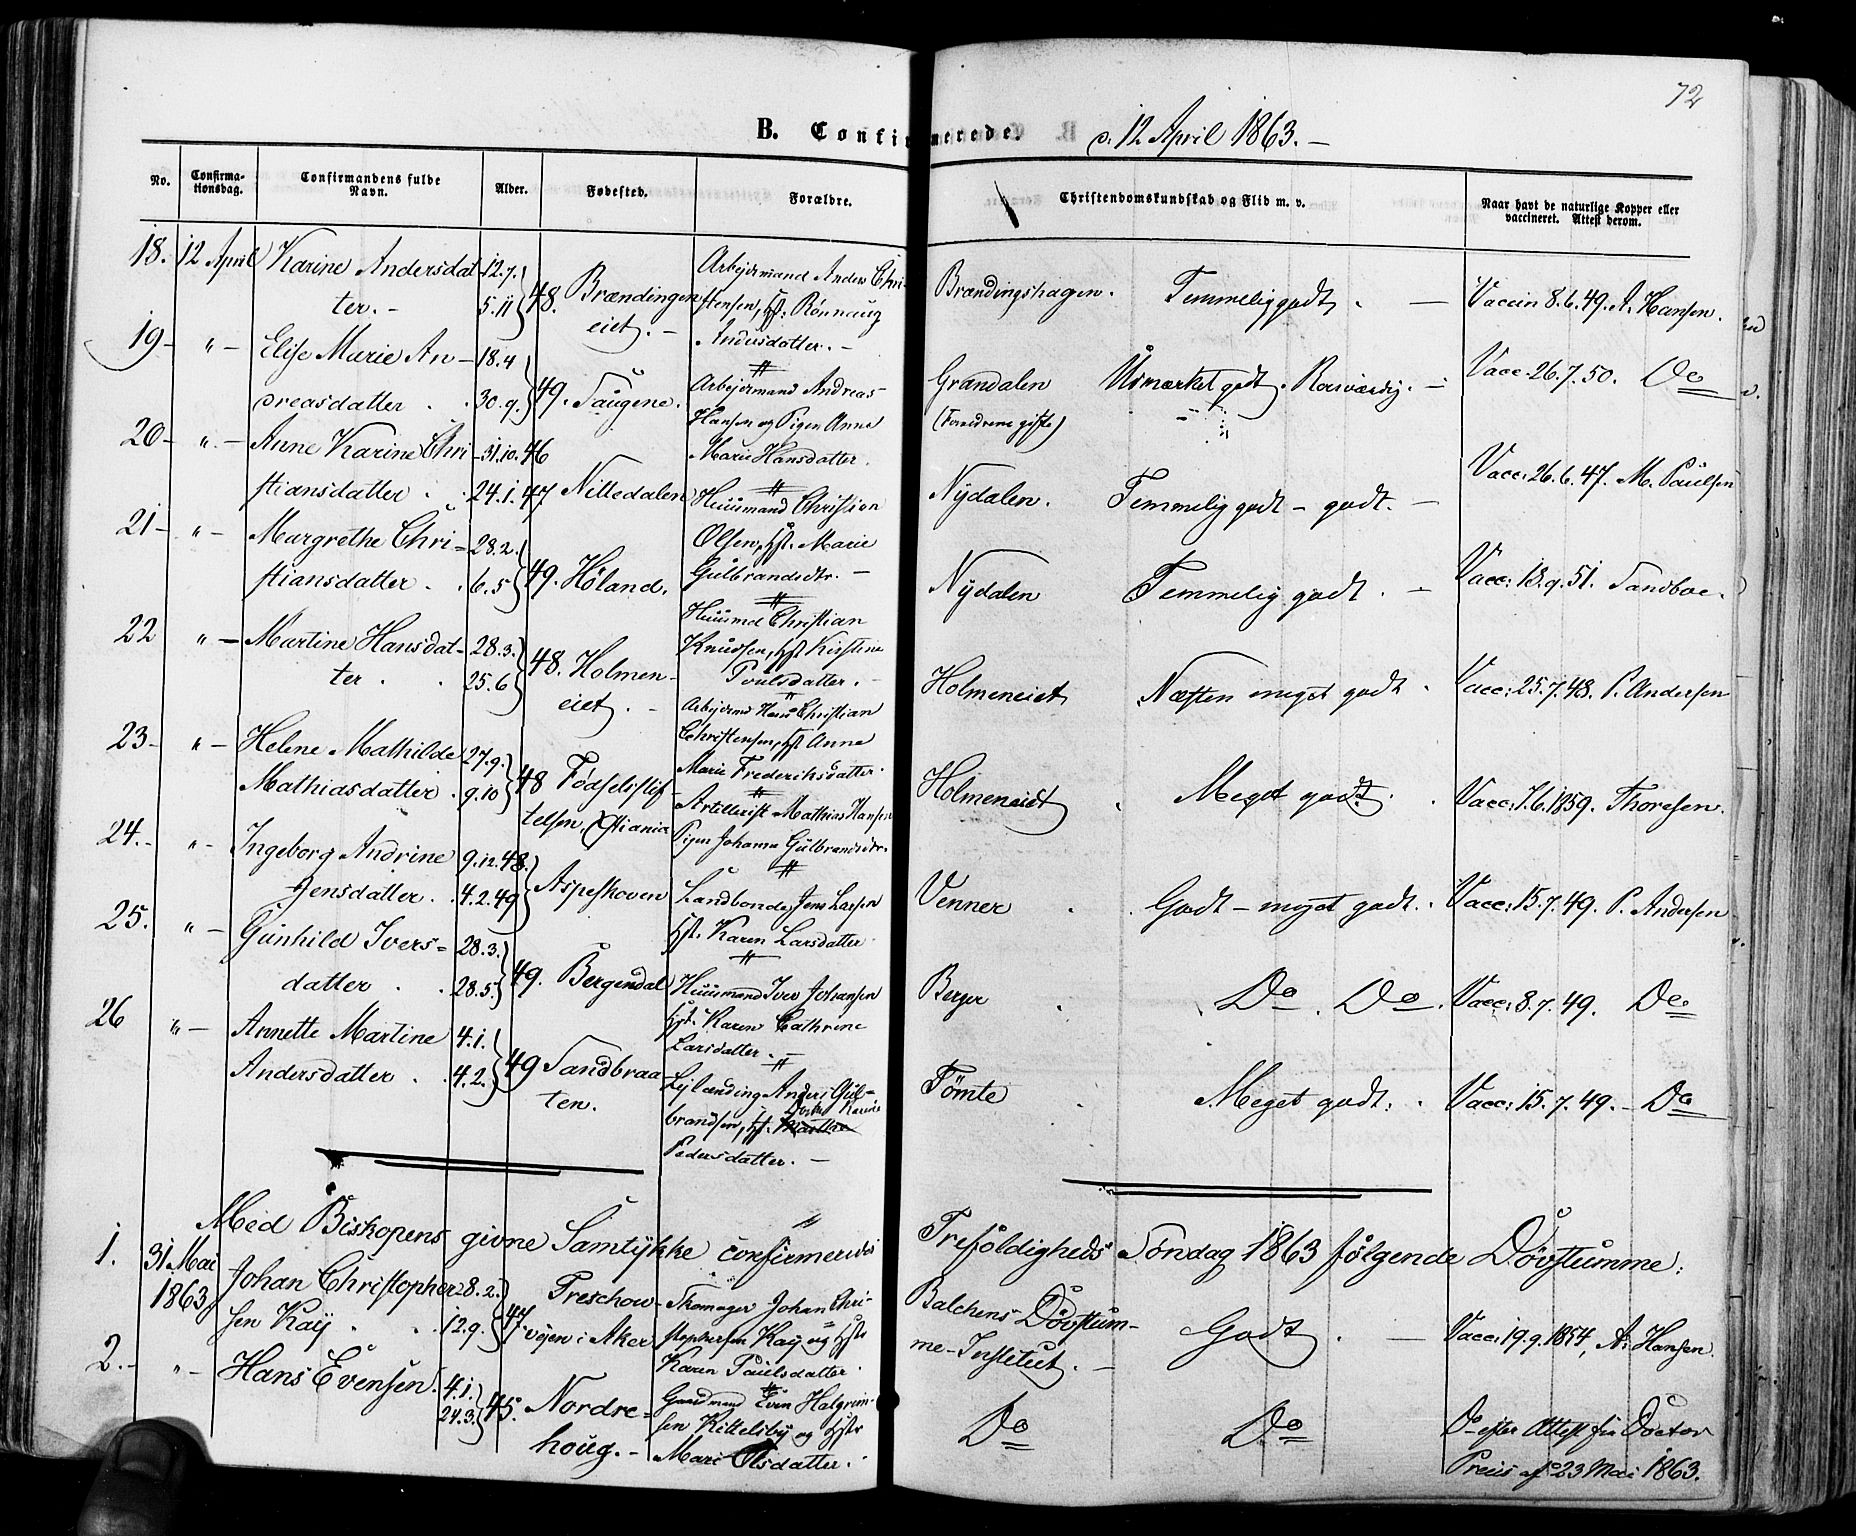 72
B. Confirmerede. d. 12 April 1863. –
No.
Confirma-
tionsdag.
Confirmandens fulde
Navn.
Alder.
Fødested.
Forældre.
Christendomskundskab og Flid m. v.
Naar havt de naturlige Kopper eller
vaccineret. Attest derom.
18. 12 April Karine Andersdat-
ter. –
12.7.
5.11
48. Brændingen
eiet. –
Arbeidermand Anders Chri-
stensen, Hst. Rönnaug
Andersdatter. –
Brændingshagen. Temmelig godt. – Vaccin 8.6.49. A. Hansen.
19 – " – Elise Marie An-
dreasdatter
18.4
30.9.
49. Saugene.
Arbeidermand Andreas
Hansen og Pigen Anne
Marie Hansdatter.
Grændalen
(Forældrene gifte)
Udmærket godt. Rosværdig. – Vacc. 26.7.50. Do
20 – " – Anne Karine Chri-
stiansdatter
31.10.46
24.1.47
Nittedalen
Huusmand Christian
Olsen, Hst. Marie
Gulbrandsdtr. –
Nydalen. Temmelig godt – godt. – Vacc: 26.6.47. M. Paulsen
21 – " – Margrethe Chri-
stiansdatter
28.2.
6.5
49. Höland.
Huusmd Christian
Knudsen, Hst Kirstine
Poulsdatter. –
Nydalen Temmelig godt. – Vacc: 13.9.51. Sandboe.
22 " – Martine Hansdat-
ter
28.3.
25.6
48. Holmen-
eiet. –
Arbeidermd Hans Christian
Christensen, Hst Anne
Marie Frederiksdatter.
Holmeneiet Næsten meget godt. Vacc: 25.7.48. P. Andersen
23 – " – Helene Mathilde
Mathiasdatter
27.9.
9.10
48 Födselsstif-
telsen, Chstiania
Artillerist Mathias Hansen
Pigen Johanne Gulbrandsdtr.
Holmeneiet Meget godt. Vacc: 7.6.1859. Thoresen.
24. – " – Ingeborg Andrine
Jensdatter.
9.12.48.
4.2.49
Aspeskoven
Landbonde Jens Larsen
Hst. Karen Larsdatter
Venner Godt – meget godt. Vacc: 15.7.49. P. Andersen
25. " – Gunhild Ivers-
datter
28.3.
28.5.
49. Bergendal
Huusmand Iver Johansen
Hst. Karen Cathrine
Larsdatter. –
Berger Do. Do. Vacc: 8.7.49. Do
26 " – Annette Martine
Andersdatter
4.1.
4.2.
49 Sandbraa-
ten.
Leilænding Anders Gul-
brandsen, Hst. Marthe Karine
Pedersdatter. –
Tömte Meget godt. Vacc: 15.7.49. – Do
Med Biskopens givne Samtykke confirmeredes Trefoldigheds Söndag 1863 fölgende Dövstumme:
1. 31. Mai
1863
Johan Christopher-
sen Kaij
28.2.
12.9.
47. Treschow-
veien i Aker
Skomager Johan Chri-
stophersen Kaij og Hstr
Karen Paulsdatter
Balchens Dövstum-
me-Institut. –
Godt. – Vacc: 19.9.1854, A. Hansen.
2. – " – Hans Evensen.
4.1.
24.3.
45. Nordre-
houg. –
Gaardmand Even Halgrim-
sen Kittelsby og Hstr
Mari Olsdatter.
Do Do Do efter Attest fra Doctor
Preus af 23 Mai 1863.